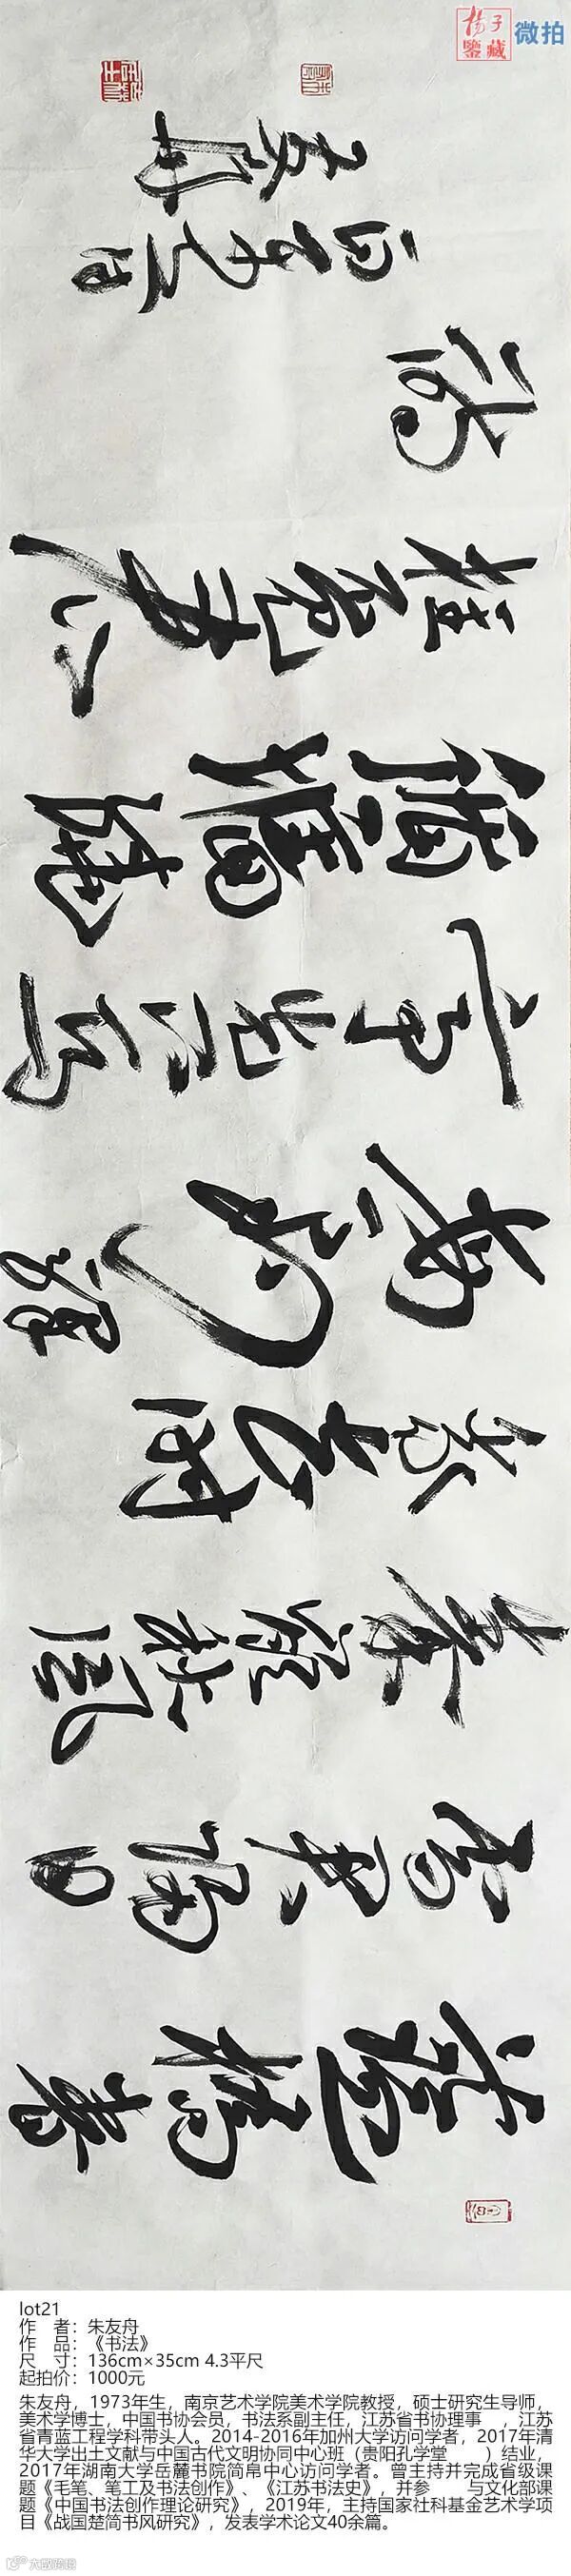 扬子
鉴藏
微拍
蓝桥春
雪君归日
秦岭秋风
我去时
每到驿
亭先下马
循墙绕
柱觅君
诗
友舟
lot21
作 者：朱友舟
作 品：《书法》
尺 寸：136cm×35cm 4.3平尺
起拍价：1000元
朱友舟，1973年生，南京艺术学院美术学院教授，硕士研究生导师，
美术学博士，中国书协会员，书法系副主任，江苏省书协理事 ，江苏
省青蓝工程学科带头人。2014-2016年加州大学访问学者，2017年清
华大学出土文献与中国古代文明协同中心班（贵阳孔学堂 ）结业，
2017年湖南大学岳麓书院简帛中心访问学者。曾主持并完成省级课
题《毛笔、笔工及书法创作》、《江苏书法史》，并参 与文化部课
题《中国书法创作理论研究》，2019年，主持国家社科基金艺术学项
目《战国楚简书风研究》，发表学术论文40余篇。